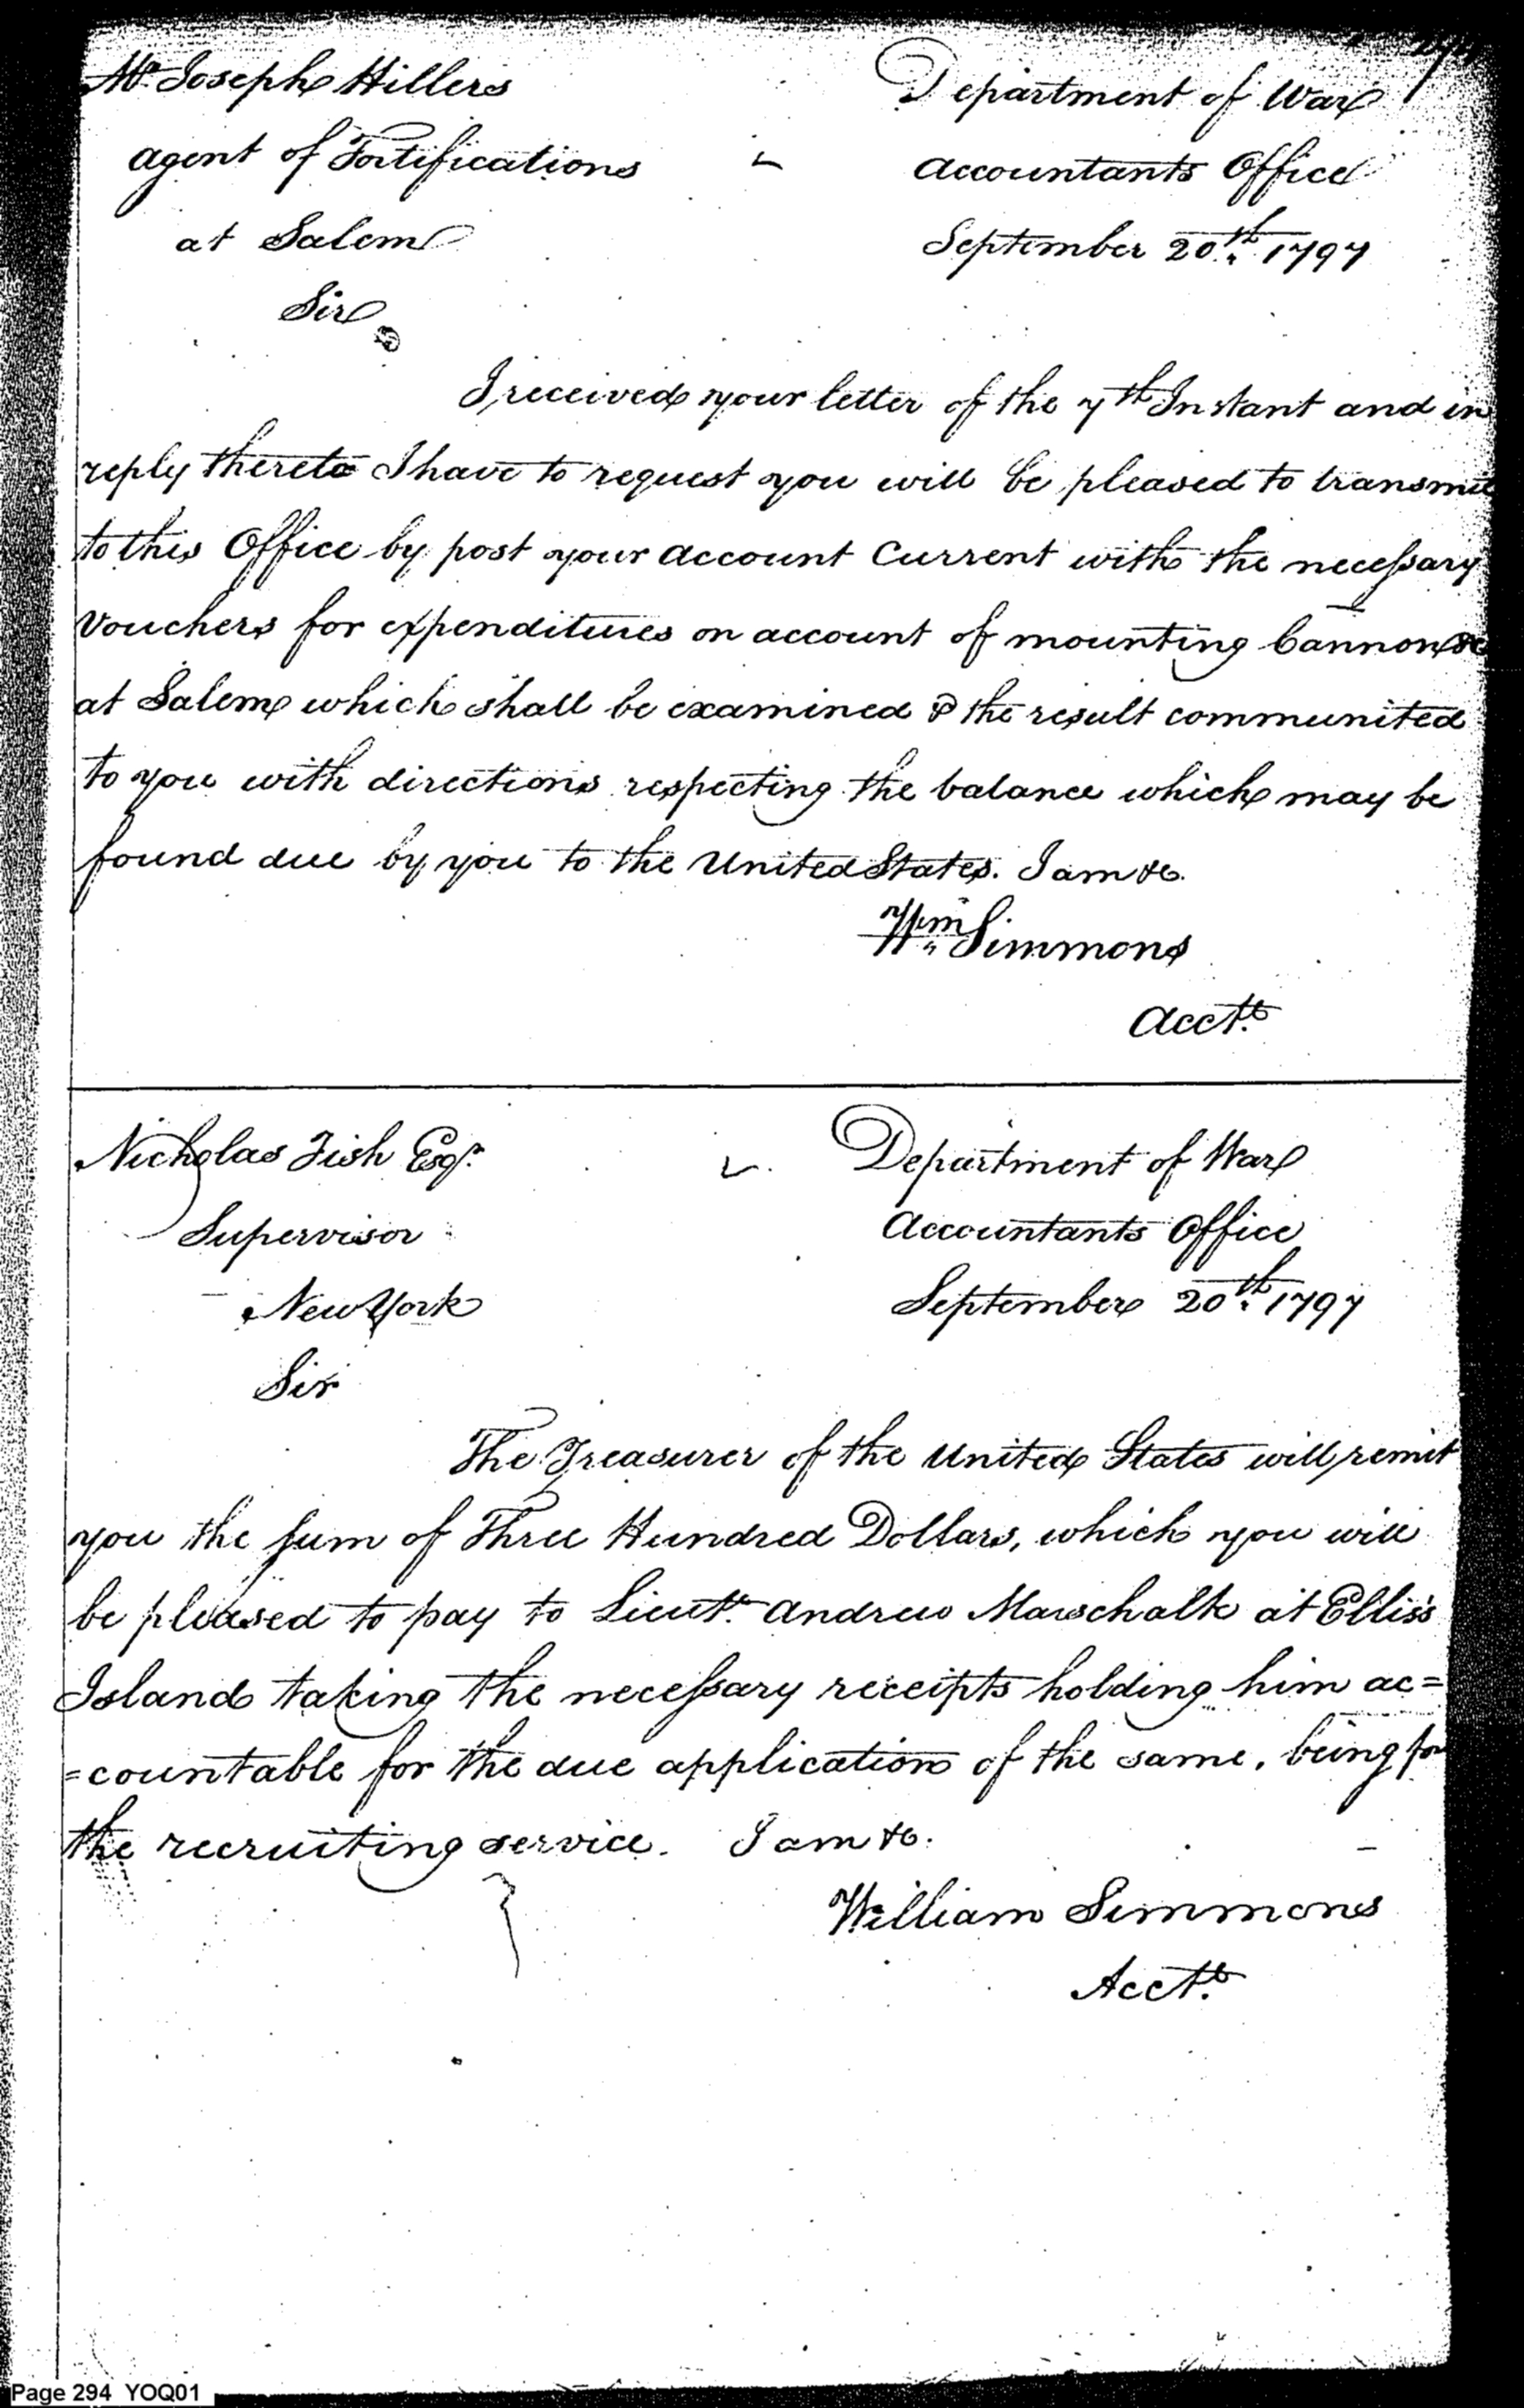 Mr. Joseph Hillers
Department of War
agent of Fortifications
accountants Office
at Salem
September 20th. 1797
Sir
I received your letter of the 7th Instant and in
reply thereto I have to request you will be pleased to transmit
to this Office by post your account Current with the necessary
vouchers for expenditures on account of mounting Cannon &c
at Salem which shall be examined & the result communited
to you with directions respecting the balance which may be
found due by you to the United States. I am &c.
Wm. Simmons
Acctt.
Nicholas Fish Esqr.
Department of War
Supervisor
Accountants Office
New York
September 20th. 1797
Sir
The Treasurer of the United States will remit
you the sum of Three Hundred Dollars, which you will
be pleased to pay to Lieutt. Andrew Marschalk at Ellis's
Island taking the necessary receipts holding him ac=
=countable for the due application of the same, being for
the recruiting service. I am &c.
William Simmons
Acctt.
Page 294 YOQ01